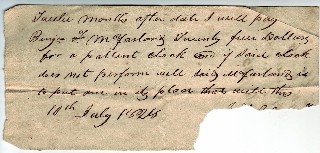 Twelve months after date I will pay
Benja F. McFarland Twenty five Dollars
for a patient clock and if said clock
does not perform well said McFarland is
to put one in its place that will this
10th July 1826